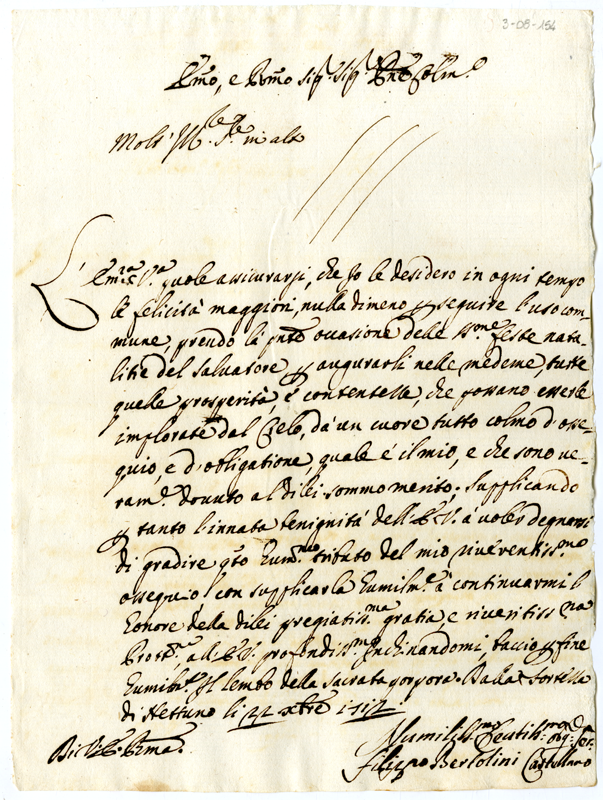 3-08-154
Emo, e Rmo Sigr. Sigr. Pne Colmo
Molt' Ille. in alto
L'Em.za V.a puole assicurarsi, che Io le desidero in ogni tempo
le felicità maggiori, nulla dimeno p seguire l'uso com-
mune, prendo la pnte occasione delle Sme. feste nata-
litie del Salvatore p augurarli nelle medeme, tutte
quelle prosperità, e contentezze, che possano esserle
implorate dal Cielo, da un cuore tutto colmo d'osse-
quio, e d'obligatione, quale è il mio, e che sono ve-
ram.e dovuto al di lei sommo merito; supplicando
p tanto l'innata benignità dell'E.V. à voler degnarsi
di gradire qsto humo. tributo del mio riverentiss.mo
ossequio con supplicarla humilm.e à continuarmi l'
honore della di lei pregiatiss.ma gratia, e riveritiss.ma
Prott.ne, all'E.V. profondiss.e Inchinandomi, baccio p fine
humilm.te Il lembo della sacrata porpora. Dalla Fortezza
di Nettuno li 22 xbre 1717
Di V. E. Rma.
Humiliss.mo Devotiss.mo oblig. Ser.
Filippo Bertolini Castellano